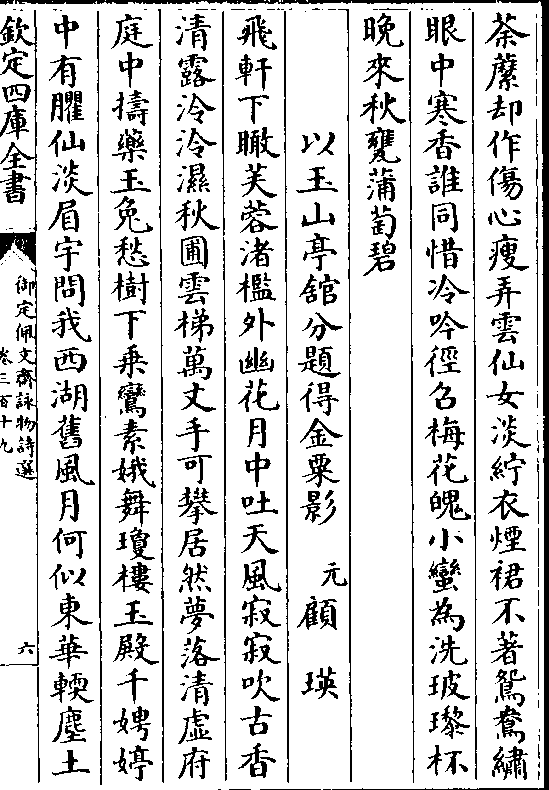 荼䕷却作傷心瘦弄雲仙女淡紵衣煙裙不著鴛鴦繡
眼中寒香誰同惜冷吟徑召梅花魄小蠻為洗玻瓈杯
晚來秋甕蒲萄碧
以玉山亭舘分題得金粟影 元 顧瑛
飛軒下瞰芙蓉渚檻外幽花月中吐天風寂寂吹古香
清露泠泠濕秋圃雲梯萬丈手可攀居然夢落清虛府
庭中擣藥玉兔愁樹下乗鸞素娥舞瓊樓玉殿千娉婷
中有臞仙淡眉宇問我西湖舊風月何似東華輭塵土
欽定四庫全書
御定佩文齋詠物詩選
卷三百十九
六